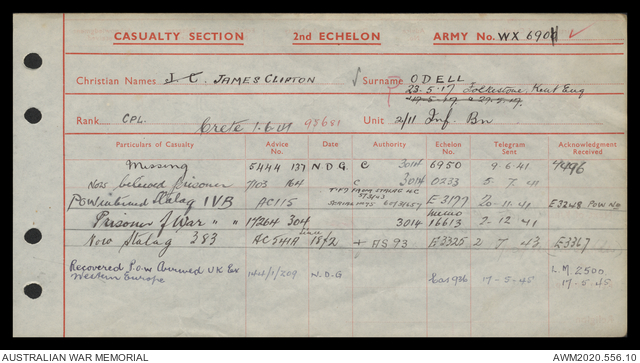 CASUALTY SECTION 2nd ECHELON ARMY No. WX 6904
Christian Names J. C. JAMES CLIFTON Surname ODELL
23-5-17 Folkestone, Kent Eng
Rank CPL. Crete 1.6.41 95681 Unit 2/11 Inf. Bn
Particulars of Casualty Advice No. Authority Echelon No. Telegram Sent Acknowledgment Received
Missing 5444 137 N.D.G. C 3014 6950 9.6.41 4496
Now believed prisoner 7103 164 C 3014 0233 5.7.41
POW interned Stalag IVB AC115 E3177 20.11.41 E3248 POW No
Prisoner of War " " 17264 304 3014 memo 16613 7-12.41
Now Stalag 383 AC541A 18/2 AS 93 E3325 2.7.43 E3367
Recovered P.O.W Arrived UK Ex N.D.G 17-5-45 L.M. 2500
Western Europe 17-5-45
AUSTRALIAN WAR MEMORIAL AWM2020.556.10